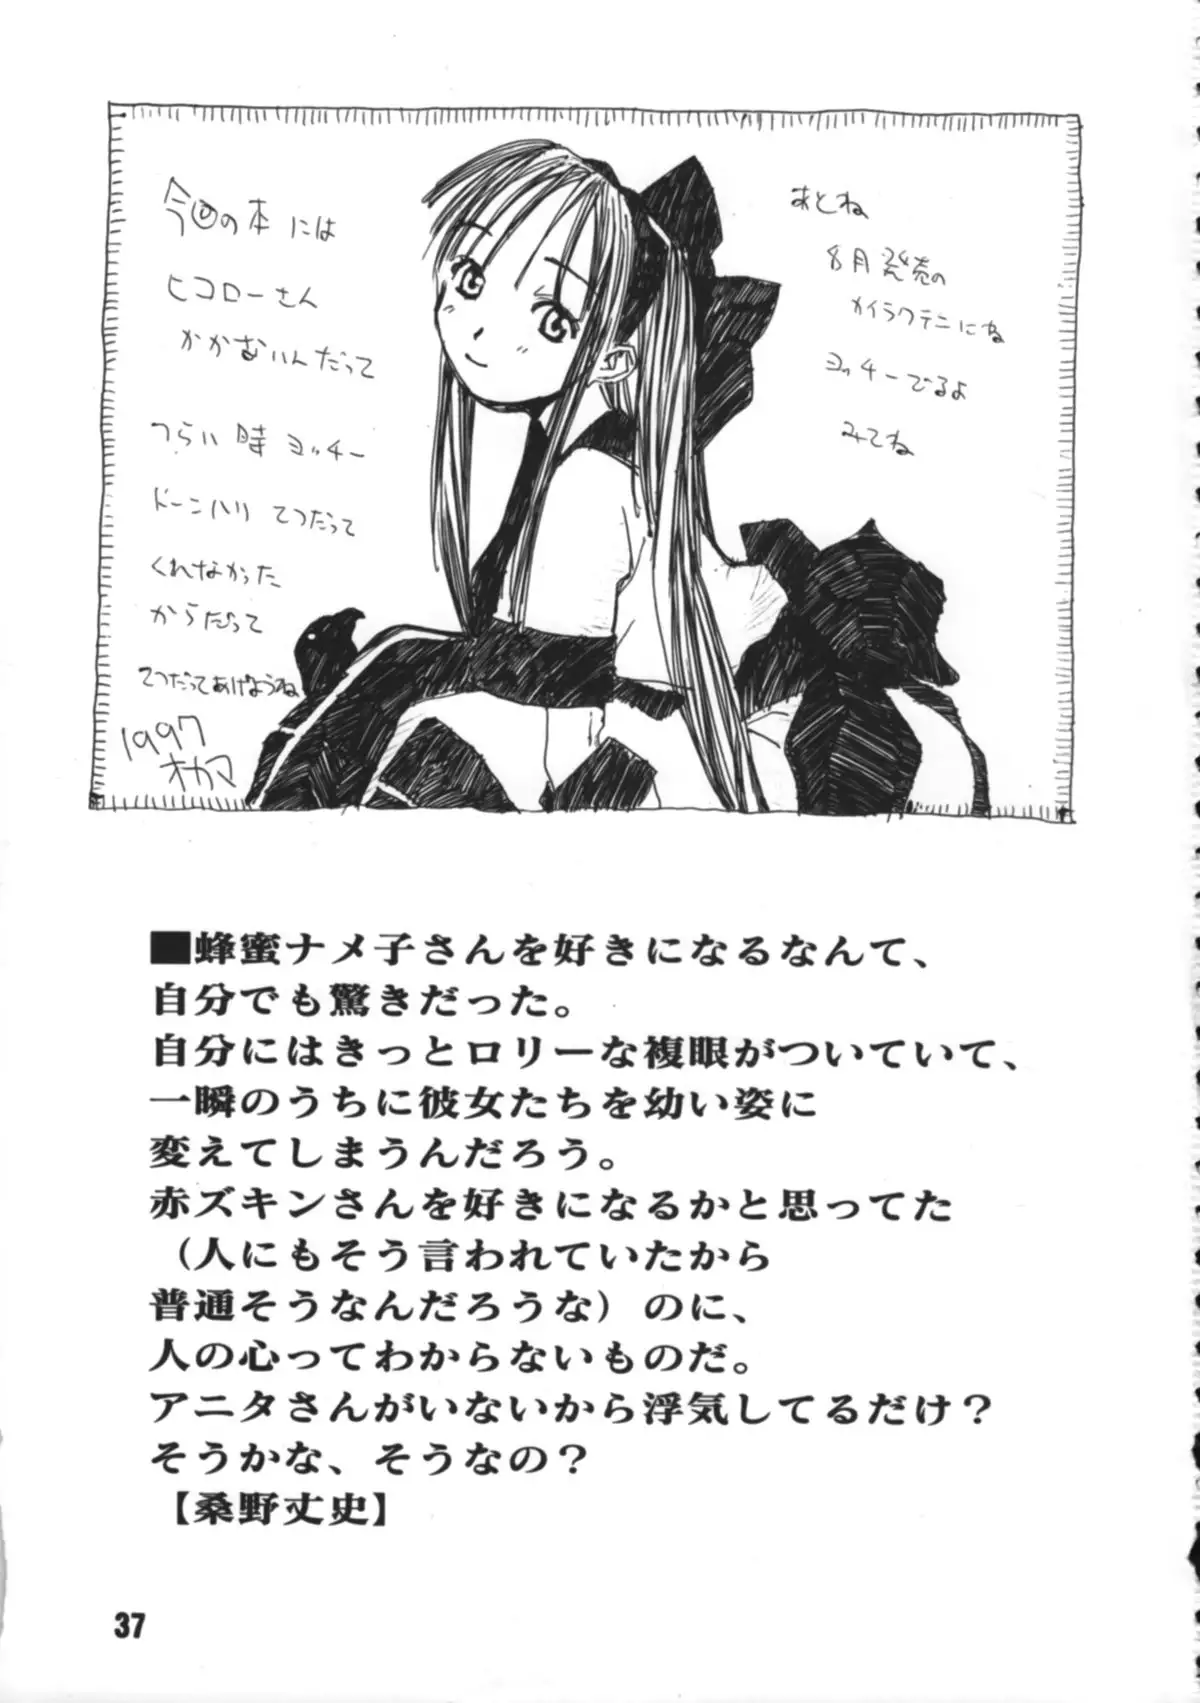 今回の本には
ヒコローさん
かかないんだって
つらい時ヨッチー
ドーンハリてつだって
くれなかった
からだって
てつだってあげようね
1997
オカマ
あとね
8月発売の
カイラクテンにね
ヨッチーでるよ
みてね
■蜂蜜ナメ子さんを好きになるなんて、
自分でも驚きだった。
自分にはきっとロリーな複眼がついていて、
一瞬のうちに彼女たちを幼い姿に
変えてしまうんだろう。
赤ズキンさんを好きになるかと思ってた
（人にもそう言われていたから
普通そうなんだろうな）のに、
人の心ってわからないものだ。
アニタさんがいないから浮気してるだけ？
そうかな、そうなの？
【桑野丈史】
37